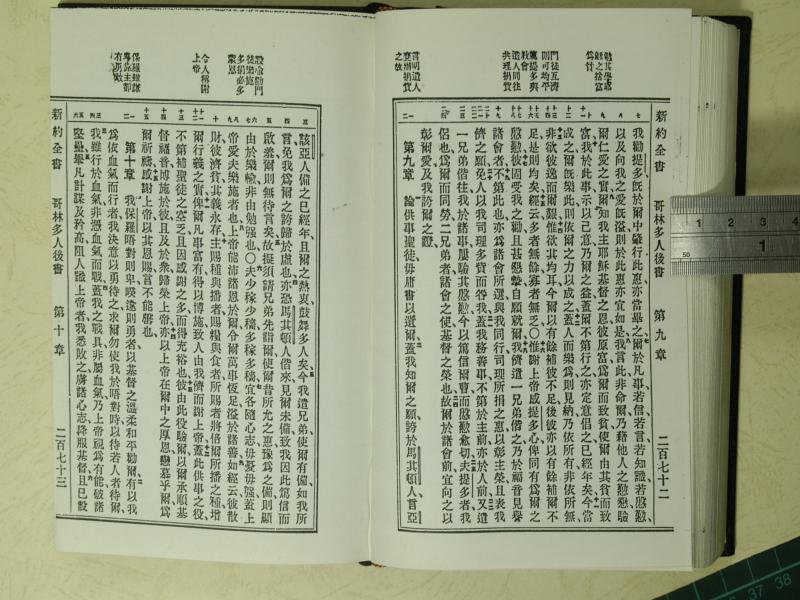 新約全書　哥林多人後書　第九章　二百七十二
勉其學虛
榮之捨富
爲貧
門徒互濟
則可均平
薦提多與
教會
遣人同往
共理捐貲
言明遣人
來辦捐貲
之故
我勸提多旣於爾中肇行此惠亦當畢之爾於凡事若信若言若知識若慇懃
以及向我之愛旣溢則於此惠亦宜如是我言此非命爾乃藉他人之慇懃驗
爾仁愛之實爾知我主耶穌基督之恩彼原富爲爾而致貧使爾由其貧而致
富我於此事示以己意乃爾之益蓋爾不第行之亦定意倡之已經年矣今當
成之爾旣樂此則依爾之力以成之蓋人而樂爲則見納乃依所有非依所無
非欲彼逸而爾艱惟欲其均耳今爾以有餘補彼不足後彼亦以有餘補爾不
足是則均矣經云多者無餘寡者無乏〇惟謝上帝感提多心俾同有爲爾之
慇懃彼固受我之勸且甚懇摯自願就爾我儕遣一兄弟偕之乃於福音見譽
諸會者不第此也亦爲諸會所選與我同行司理所捐之惠以彰主榮且表我
儕之願免人以我司理多貲而咎我蓋我務善事不第於主前亦於人前又遣
一兄弟偕往我於諸事屢驗其慇懃今以篤信爾曹而慇懃愈切夫提多者我
侶也爲爾而同勞二兄弟者諸會之使基督之榮也故爾於諸會前宜向之以
彰爾愛及我誇爾之證
第九章　論供事聖徒毋庸書以遺爾蓋我知爾之願誇於馬其頓人言亞
設喻勸門
徒樂施
多捐必多
蒙恩
令人稱謝
上帝
保羅雖謙
卑旅主卻
有勇敢
該亞人備之已經年且爾之熱衷鼓舞多人矣今我遣兄弟使爾有備如我所
言免我爲爾之誇歸於虛也亦恐馬其頓人偕來見爾未備致我因此篤信而
啟羞爾則無待言矣故擬須請兄弟先詣爾使爾昔所允之惠豫爲之備則顯
由於樂輸非由勉强也〇夫少稼少穡多稼多穡宜各隨心志毋憂毋强蓋上
帝愛夫樂施者也上帝能沛諸恩於爾令爾萬事恆足溢於諸善如經云彼散
財彼濟貧其義永存主賜種與播者賜糧與食者所賜者將倍爾所播之種增
爾行義之實俾爾凡事富有得以博施致人由我儕而謝上帝蓋此供事之役
不第補聖徒之空乏且因感謝之多而得充裕也彼由此役驗爾以爾承順基
督福音博施於彼且及於衆歸榮上帝亦以上帝在爾中之厚恩戀慕乎爾爲
爾祈禱感謝上帝以其恩賜言不能罄也
第十章　我保羅晤對則卑暌違則勇者以基督之溫柔和平勸爾有以我
爲依血氣而行者我決意以勇待之求爾勿使我於晤對時以待若人者待爾
我雖行於血氣非憑血氣而戰蓋我之戰具非屬血氣乃上帝視爲有能破諸
堅壘舉凡計謀及矜高阻人識上帝者我悉敗之虜諸心志歸服基督且已設
新約全書　哥林多人後書　第十章　二百七十三
1 2 3
1
50
37 38